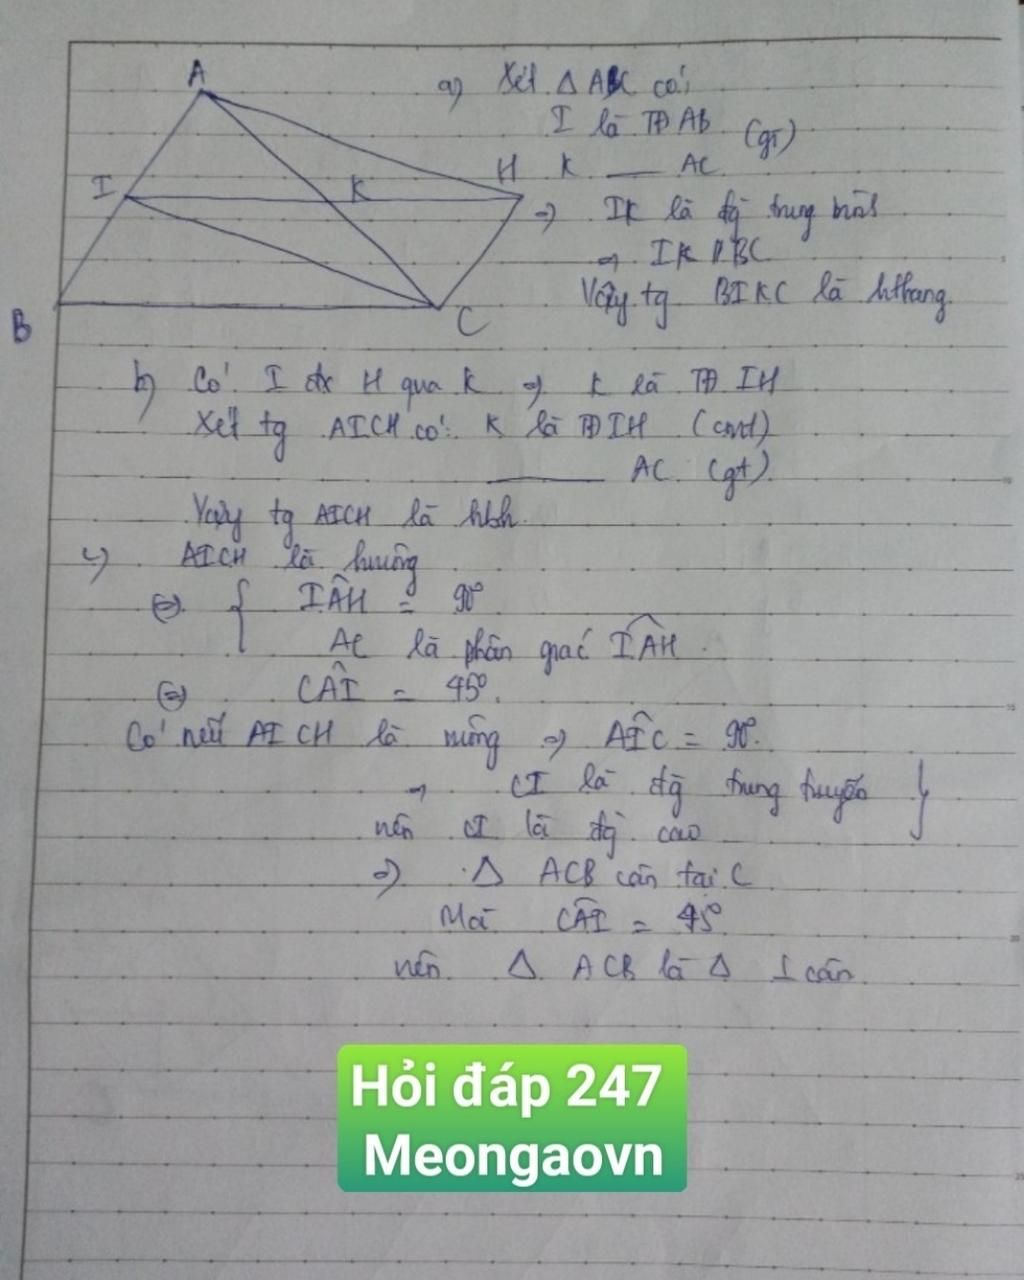 A
I
K
H
B
C
a) Xét Δ ABC có:
I là TĐ AB
(gt)
K — AC
=> IK là đg trung bình
=> IK // BC
Vậy tg BIKC là hthang.
b) Có I đx H qua K => K là TĐ IH
Xét tg AICH có: K là TĐ IH (cmt)
AC (gt)
Vậy tg AICH là hbh.
c) AICH là hvuông
<=> { IÂH = 90°
AC là phân giác IAH.
<=> CÂI = 45°.
Có nếu AICH là vuông => AÎC = 90°.
→ CI là đg trung tuyến }
nên CI là đg cao
=> Δ ACB cân tại C
Mà CÂI = 45°
nên Δ ACB là Δ ⊥ cân.
Hỏi đáp 247
Meongaovn